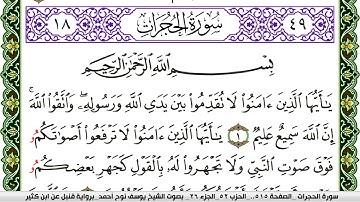 ٤٩ سُورَةُ الحُجُرَاتِ ١٨
بِسْمِ اللَّهِ الرَّحْمَٰنِ الرَّحِيمِ
يَٰأَيُّهَا الَّذِينَ ءَامَنُوا لَا تُقَدِّمُوا بَيْنَ يَدَيِ اللَّهِ وَرَسُولِهِ وَاتَّقُوا اللَّهَ
إِنَّ اللَّهَ سَمِيعٌ عَلِيمٌ ١ يَٰأَيُّهَا الَّذِينَ ءَامَنُوا لَا تَرْفَعُوا أَصْوَاتَكُمُ
فَوْقَ صَوْتِ النَّبِيِّ وَلَا تَجْهَرُوا لَهُ بِالْقَوْلِ كَجَهْرِ بَعْضِكُمُ
سورة الحجرات _الصفحة ٥١٥_ الحزب ٥٢_ الجزء ٢٦ _ بصوت الشيخ يوسف نوح أحمد_ برواية قنبل عن ابن كثير